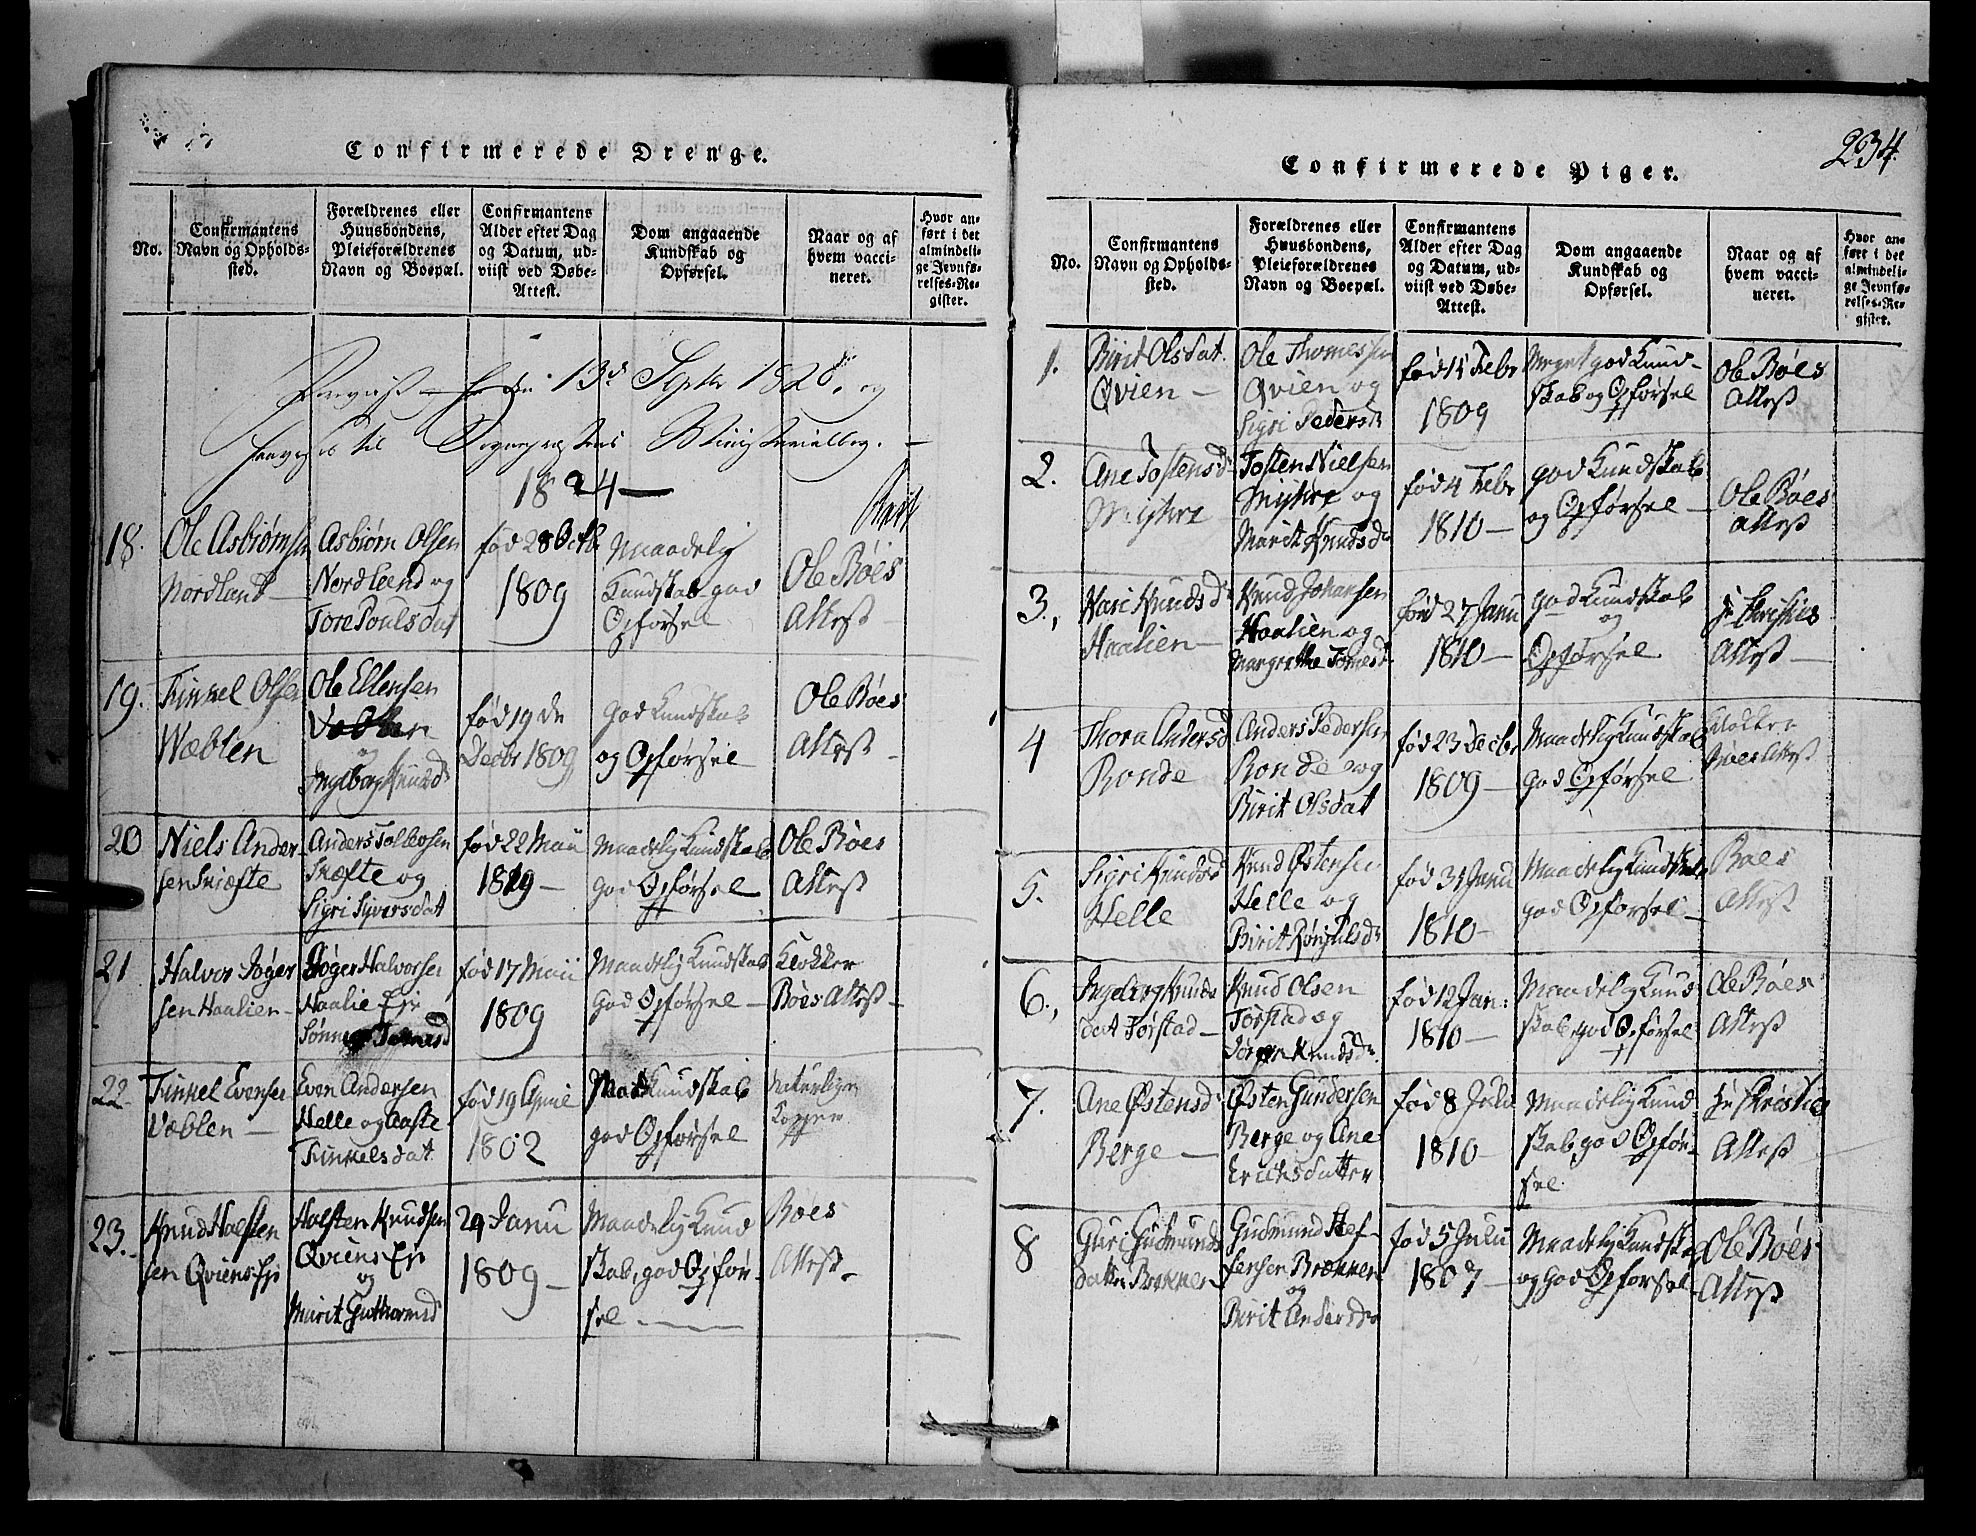 Confirmerede Drenge.
No.
Confirmantens
Navn og Opholds-
sted.
Forældrenes eller
Huusbondens,
Pleieforældrenes
Navn og Boepæl.
Confirmantens
Alder efter Dag
og Datum, ud-
viist ved Døbe-
Attest.
Dom angaaende
Kundskab og
Opførsel.
Naar og af
hvem vacci-
neret.
Hvor an-
ført i det
almindeli-
ge Jevnfø-
relses-Re-
gister.
13de Septbr 1828, og
til Ministerialbog. —
1824 —
18.
Ole Asbiørnsen
Nordland —
Asbiørn Olsen
Nordland og
Tore Poulsdat
fød 28 Octb
1809
Maadelig
Kundskab god
Opførsel
Ole Bøes
Attest
19.
Tinkel Olsen
Wæblen
Ole Ellensen
og
Ingeborg Knudsd
fød 19 de
Decbr 1809
god Kundskab
og Opførsel
Ole Bøes
Attest
20
Niels Ander-
sen Skiæfte
Anders Tollevsen
Skæfte og
Sigri Syversdat
fød 22 Maii
1809 —
Maadelig Kundskab
god Opførsel
Ole Bøes
Attest
21
Halvor Joger
sen Haalien —
Joger Halvorsen
Haalie Eje
fød 17 Maii
1809
Maadelig Kundskab
god Opførsel —
Klokker
Bøes Attest —
22
Tinkel Evensen
Væblen —
Even Andersen
Helle og Aaste
Tinkelsdat
fød 19 April
1802
Maad Kundskab
god Opførsel
naturlige
Kopper
23.
Knud Halsten
sen Qviens Eje
Halsten Knudsen
Qviens Eje
og
Marit Guttormsd
29 Janu
1809 —
Maadelig Kund
skab, god Opfør-
sel —
Bøes
Attest —
234.
Confirmerede Piger.
No.
Confirmantens
Navn og Opholds-
sted.
Forældrenes eller
Huusbondens,
Pleieforældrenes
Navn og Boepæl.
Confirmantens
Alder efter Dag
og Datum, ud-
viist ved Døbe-
Attest.
Dom angaaende
Kundskab og
Opførsel.
Naar og af
hvem vacci-
neret.
Hvor an-
ført i det
almindeli-
ge Jevnfø-
relses-Re-
gister.
1.
Birit Olsdat.
Qvien —
Ole Thomessen
Qvien og
Sigri Pedersdr
fød 15 Febr
1809
Meget god Kund-
skab og Opførsel
Ole Bøes
Attest
2.
Ane Tostensdr
Myhre
Tosten Nielsen
Myhre og
Marit Knudsdr
fød 4 Febr
1810 —
god Kundskab
og Opførsel —
Ole Bøes
Attest
3.,
Kari Knudsdr
Haalien —
Knud Johansen
Haalien og
Margrethe Tomesdr
fød 27 Janu
1810 —
god Kundskab
og
Opførsel
Hr Christies
Attest —
4
Thora Andersd
Ronde
Anders Pedersen
Ronde og
Birit Olsdat
fød 23 Decbr
1809 —
Maadelig Kundskab
god Opførsel
Klokker
Bøes Attest
5.
Sigri Knudsd
Helle
Knud Østensen
Helle og
Birit Rønjulsdr
fød 31 Janu
1810 —
Maadelig Kundskab
god Opførsel —
Boes
Attest
6.,
Ingeborg Knuds
dat Tørstad —
Knud Olsen
Torstad og
Jørgen Knudsdr.
fød 12 Jan:
1810 —
Maadelig Kund
skab, god Opførsel
Ole Bøes
Attest
7.
Ane Østensdr
Berge —
Østen Gundersen
Berge og Ane
Ericksdatter
fød 8 Julii
1810 —
Maadelig Kund
skab, god Opfør-
sel
Hr Christies
Attest
8
Guri Gudmunds
datter Brækken
Gudmund Stef-
fensen Brækken
og
Birit Andersdr
fød 5 Julii
1807 —
Maadelig Kundska
og god Opførsel
Ole Bøes
Attest